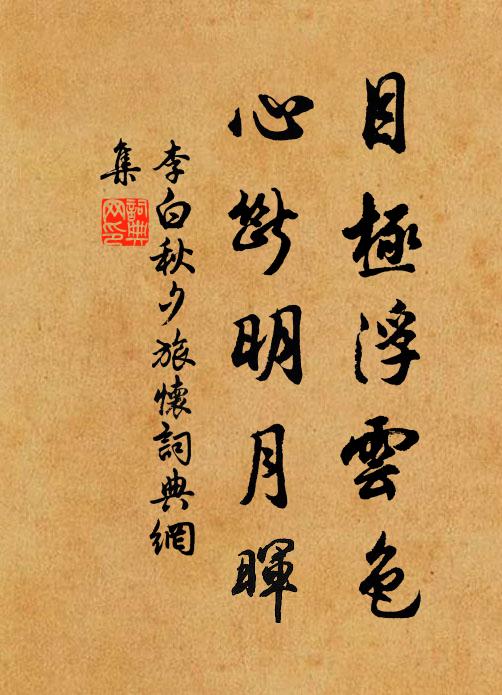 目極浮雲色
心斷明月暉
李白秋夕旅懷詞典網
集
詞典
网印